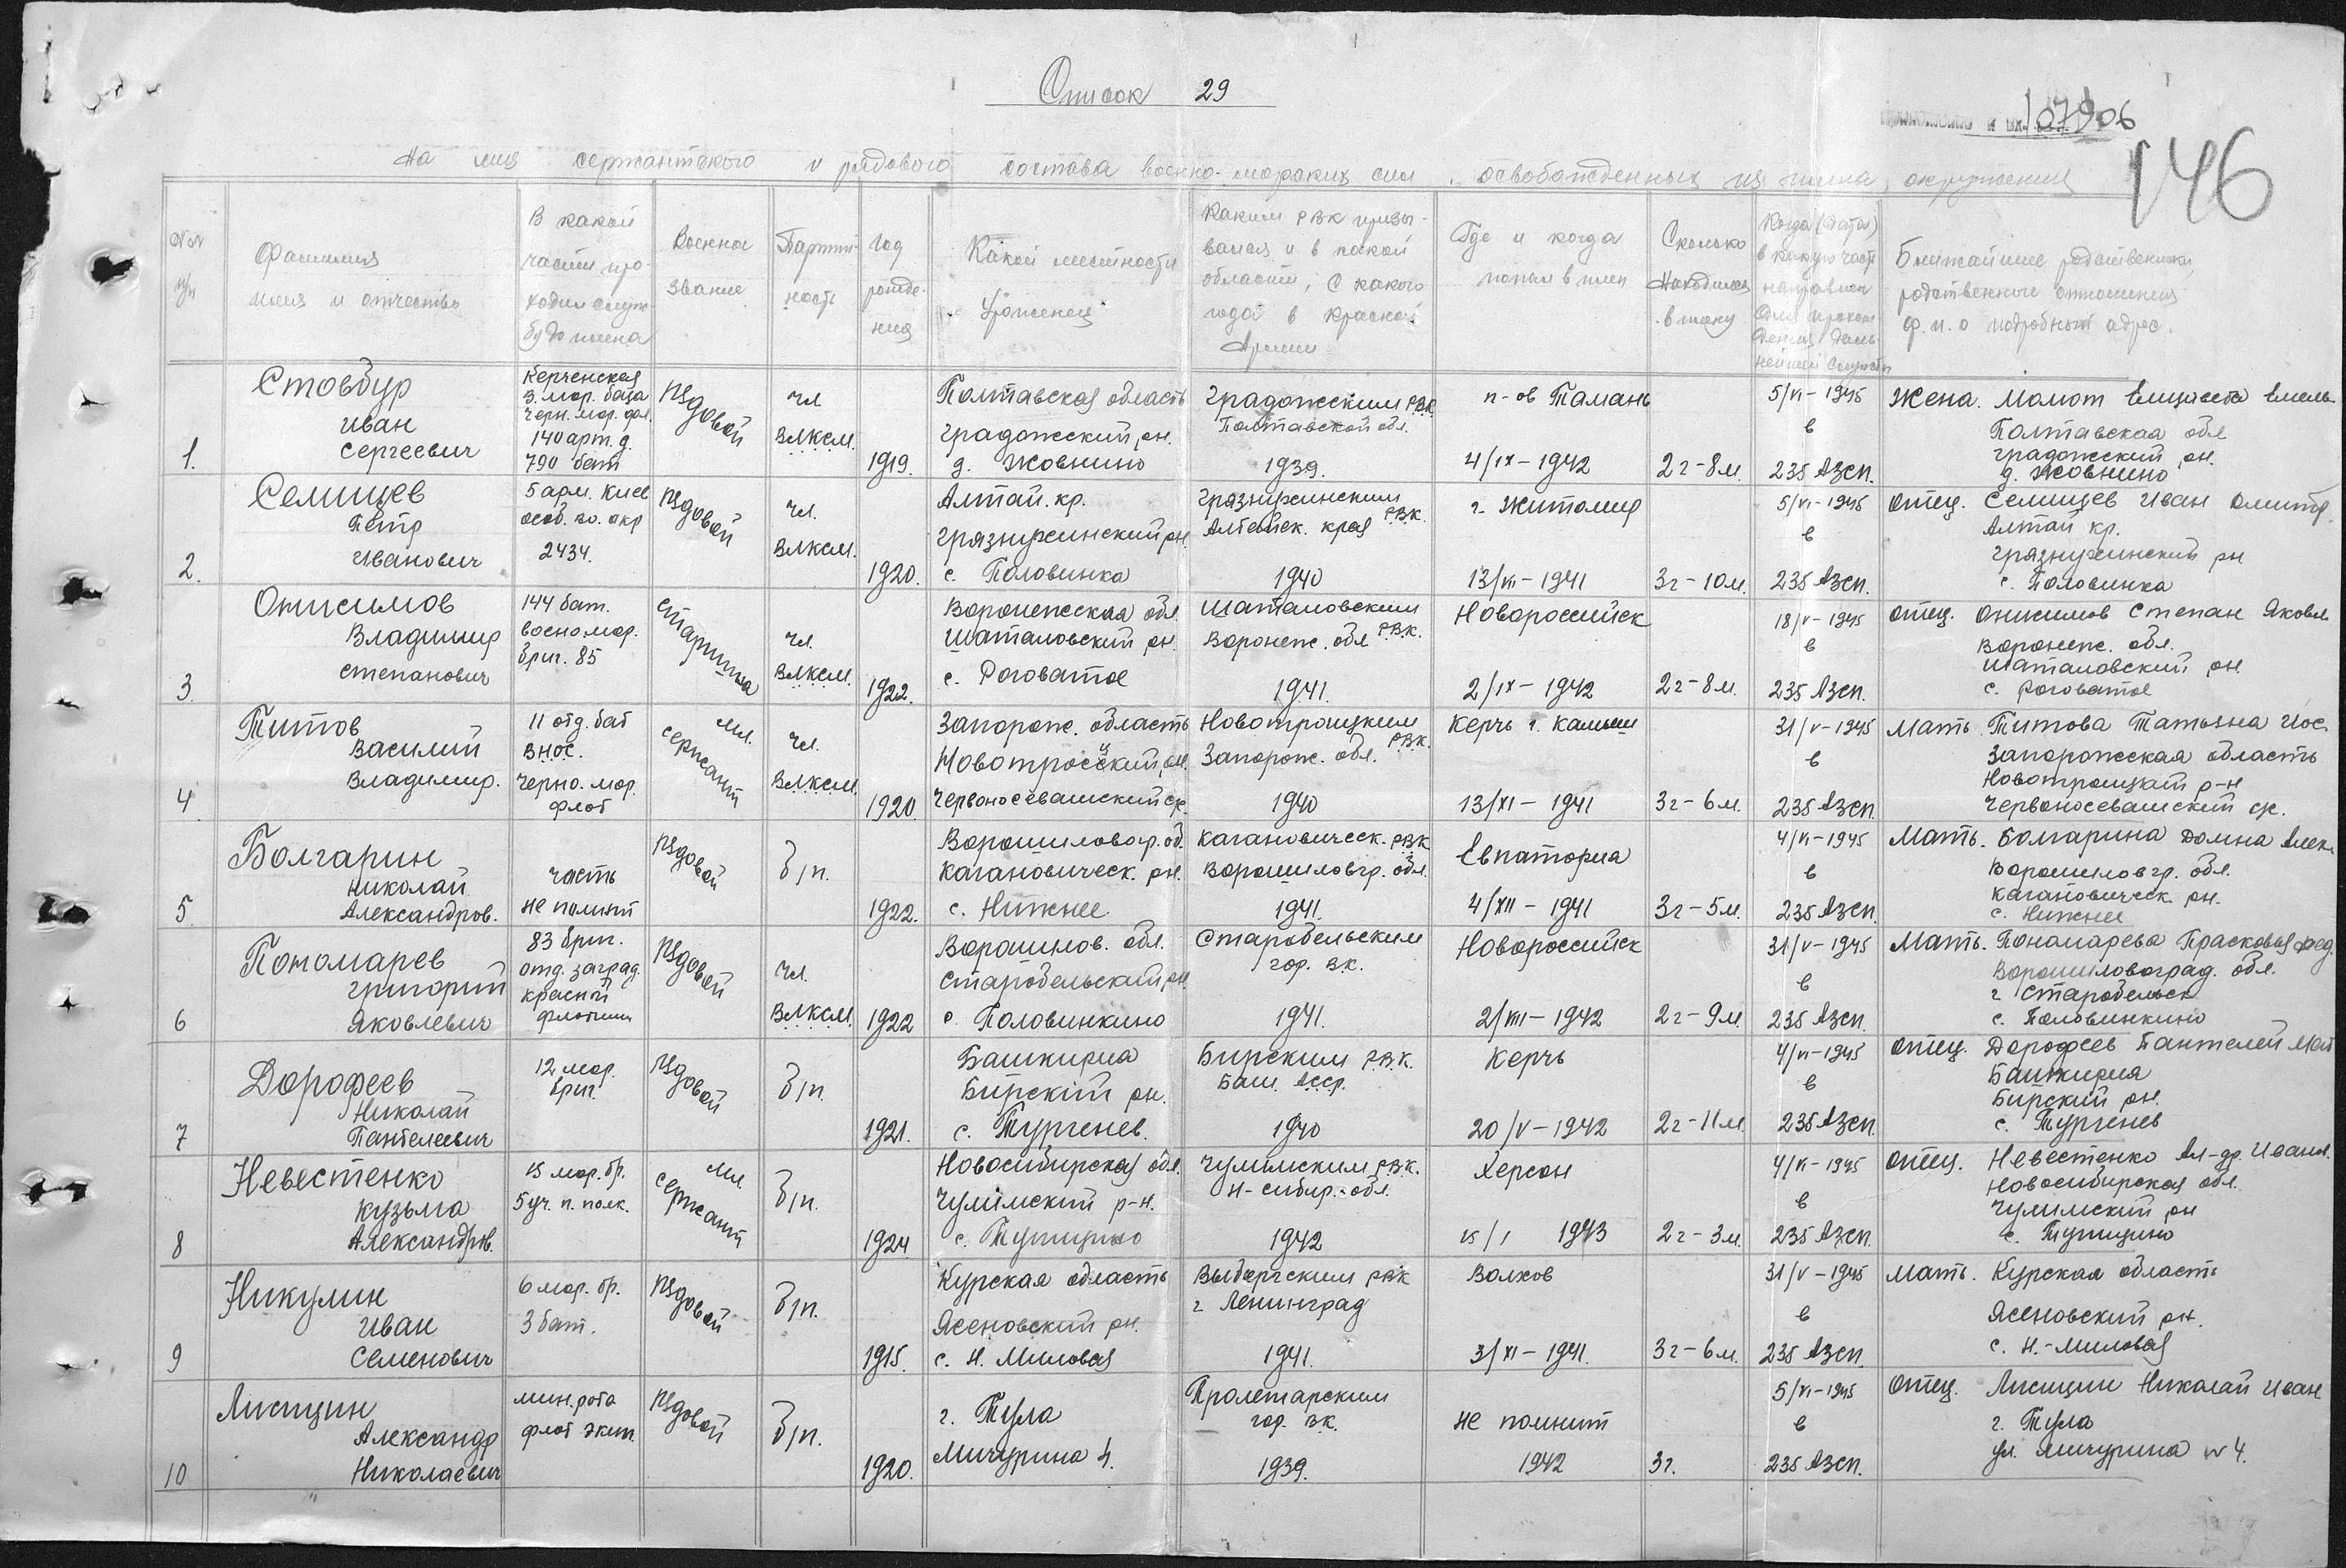 Список 29
107906
146
На лиц сержантского и рядового состава военно-морских сил, освобожденных из плена, окружения
№№ п/п
Фамилия имя и отчество
В какой части проходил службу до плена
Военное звание
Партийность
Год рождения
Какой местности уроженец
Каким РВК призывался и в какой области, с какого года в Красной Армии
Где и когда попал в плен
Сколько находился в плену
Когда (дата) в какую часть направлен для прохождения дальнейшей службы
Ближайшие родственники, родственные отношения ф.и.о подробный адрес.
1.
Стовбур Иван Сергеевич
Керченская в. мор. база Черн. мор. фл. 140 арт. д. 790 бат
рядовой
чл ВЛКСМ
1919.
Полтавская область Градожский рн. д. Жовнино
Градожским РВК. Полтавской обл. 1939.
п-ов Тамань 4/IX-1942
2г-8м.
5/VI-1945 в 235 Азсп.
Жена. Момот Елизавета Емель. Полтавская обл Градожский рн. д. Жовнино
2.
Селищев Петр Иванович
5 арм. Киев особ. во. окр 2434.
рядовой
чл. ВЛКСМ.
1920.
Алтай. кр. Грязнухинский рн. с. Половинка
Грязнухинским РВК. Алтайск. края 1940
г. Житомир 13/VII-1941
3г-10м.
5/VI-1945 в 235 Азсп.
Отец. Селищев Иван Дмитр. Алтай кр. Грязнухинский рн с. Половинка
3.
Онисимов Владимир Степанович
144 бат. воено мор. бриг. 85
старшина
чл. ВЛКСМ.
1922.
Воронежская обл. Шаталовский рн. с. Роговатое
Шаталовским РВК. Воронеж. обл 1941.
Новороссийск 2/IX-1942
2г-8м.
18/V-1945 в 235 Азсп.
Отец. Онисимов Степан Яковл Воронеж. обл. Шаталовский рн. с. Роговатое
4
Титов Василий Владимир.
11 отд. бат ВНОС. Черно. мор. флот
мл. сержант
чл. ВЛКСМ.
1920.
Запорож. область Новотроецкий рн. Червоносевашский ск.
Новотроицким РВК. Запорож. обл. 1940
Керчь г. Камыш 13/XI-1941
3г-6м.
31/V-1945 в 235 Азсп.
Мать. Титова Татьяна Иос. Запорожская область Новотроицкий р-н Червоносевашский ск.
5.
Болгарин Николай Александров.
часть не помнит
рядовой
б/п.
1922.
Ворошиловгр. об. Кагановическ. рн. с. Нижнее
Кагановическ. РВК Ворошиловгр. обл. 1941.
Евпатория 4/XII-1941
3г-5м.
4/VI-1945 в 235 Азсп.
Мать. Болгарина Домна Алек. Ворошиловгр. обл. Кагановическ. рн. с. Нижнее
6
Пономарев Григорий Яковлевич
83 бриг. отд. заград. красный флотилии
рядовой
чл. ВЛКСМ.
1922
Ворошилов. обл. Старобельский рн. с. Половинкино
Старобельским гор. ВК. 1941.
Новороссийск 2/VIII-1942
2г-9м.
31/V-1945 в 235 Азсп.
Мать. Пономарева Прасковья Фед. Ворошиловоград. обл. г Старобельск с. Половинкино
7
Дорофеев Николай Пантелеевич
12 мор. бриг.
рядовой
б/п.
1921.
Башкирия Бирский рн. с. Тургенев.
Бирским РВК. Баш. АССР. 1940
Керчь 20/V-1942
2г-11м.
4/VI-1945 в 235 Азсп.
Отец. Дорофеев Пантелей Мат Башкирия Бирский рн. с. Тургенев
8
Невестенко Кузьма Александров.
15 мор. бр. 5 уч. п. полк.
мл. сержант
б/п.
1924.
Новосибирская обл. Чулимский р-н. с. Тупицыно
Чулимским РВК. Н-сибир. обл. 1942
Херсон 15/I 1943
2г-3м.
4/VI-1945 в 235 Азсп.
Отец. Невестенко Ал-др. Иванов. Новосибирская обл. Чулимский рн с. Тупицыно
9
Никулин Иван Семенович
6 мор. бр. 3 бат.
рядовой
б/п.
1915.
Курская область Ясеновский рн. с. Н. Миловая
Выборгским РВК г Ленинград 1941.
Волхов 3/XI-1941.
3г-6м.
31/V-1945 в 235 Азсп.
Мать. Курская область Ясеновский рн. с. Н.-Миловая
10
Лисицин Александр Николаевич
мин. рота флот экип.
рядовой
б/п.
1920.
г. Тула Мичурина 4.
Пролетарским гор. ВК. 1939.
не помнит 1942
3г.
5/VI-1945 в 235 Азсп.
Отец. Лисицин Николай Иван г. Тула ул. Мичурина № 4.